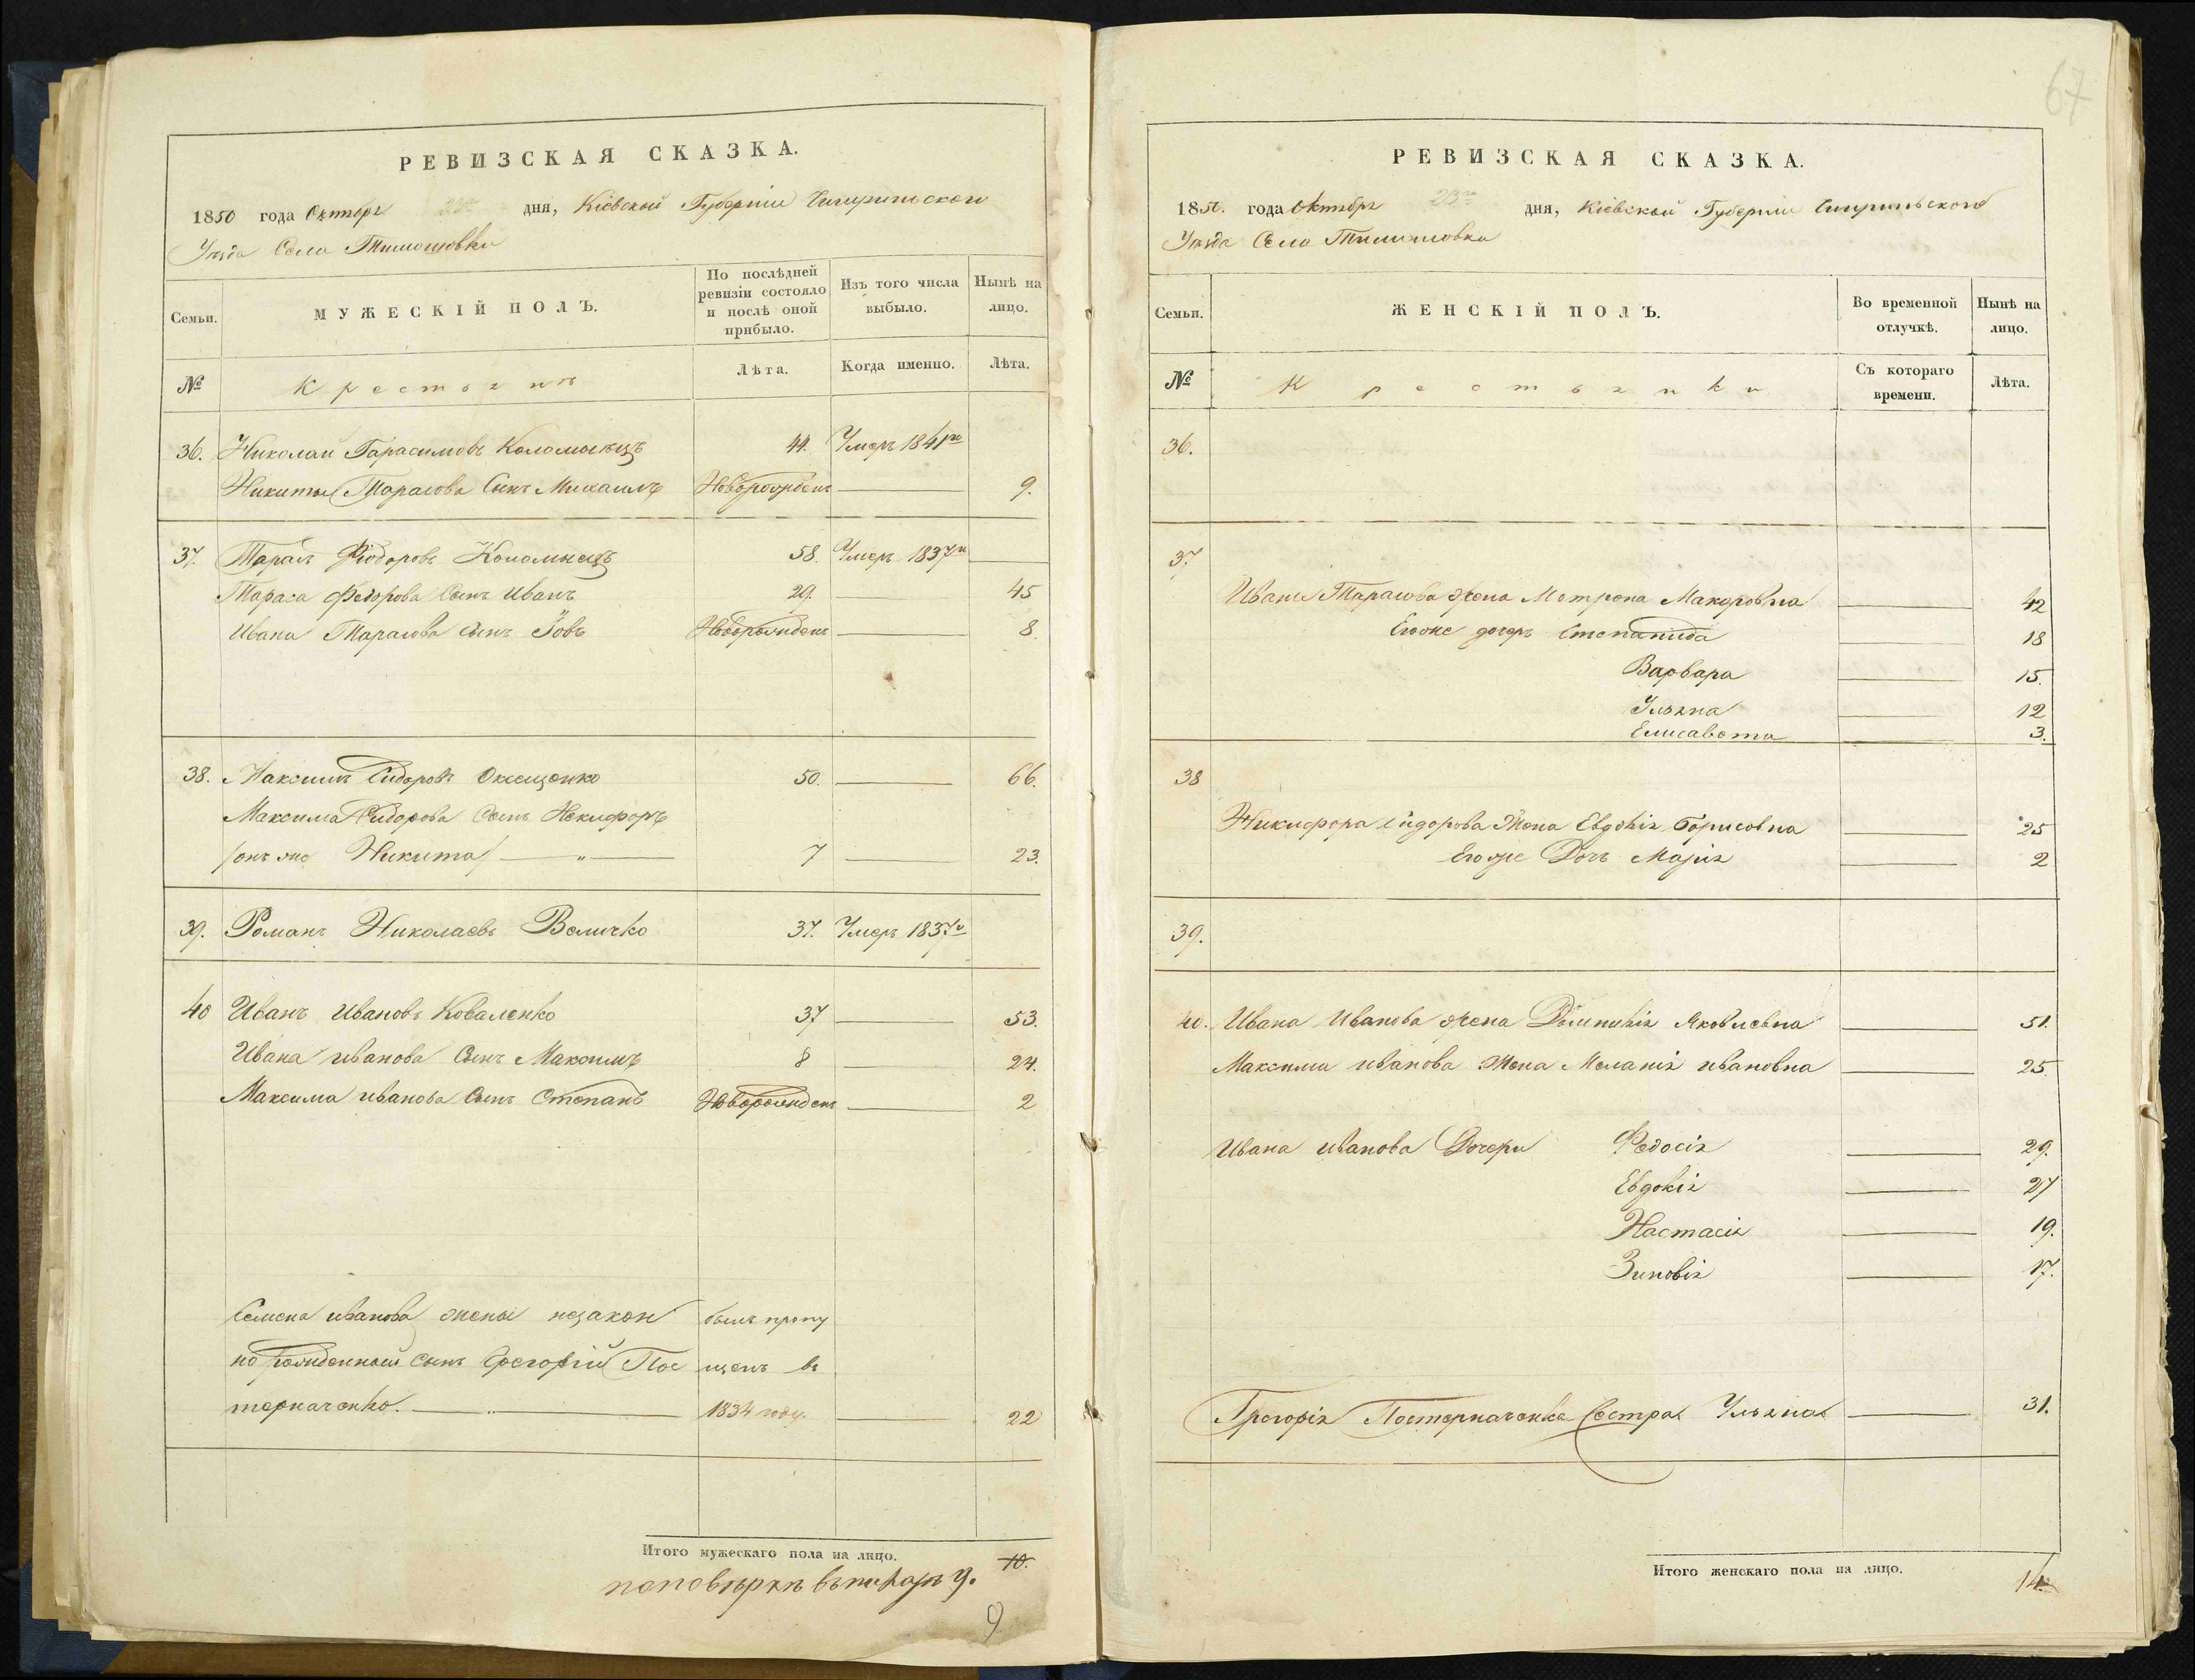 67
РЕВИЗСКАЯ СКАЗКА.
1850 года Октября 23го дня, Кіевской Губерніи Чигиринского
Уезда Села Тимошовки
Семьи.
МУЖЕСКІЙ ПОЛЪ.
По послѣдней ревизіи состояло и послѣ оной прибыло.
Изъ того числа выбыло.
Нынѣ на лицо.
№
Крестьянъ
Лѣта.
Когда именно.
Лѣта.
36. Николай Гарасимовъ Коломыецъ 44. Умеръ 1841го
Никиты Тарасова Сынъ Михаилъ Новорожденъ 9.
37. Тарасъ Фіодоровъ Коломыецъ 58. Умеръ 1837го
Тараса Федорова Сынъ Иванъ 29. 45
Ивана Тарасова Сынъ Іовъ Новорожденъ 8.
38. Максимъ Сидоровъ Онищенко 50. 66.
Максима Сидорова Сынъ Некифоръ
/онъ же Никита/ — " — 7 23.
39. Романъ Николаевъ Величко 37. Умеръ 1837го
40 Иванъ Ивановъ Коваленко 37 53.
Ивана иванова Сынъ Максимъ 8 24.
Максима иванова Сынъ Степанъ Новорожденъ 2
Семена иванова жены незакон былъ пропу
но рожденный сынъ Грегорій Пос щенъ въ
терначенко. 1834 году. 22
Итого мужескаго пола на лицо. 10.
по поверке въ 9.
9
РЕВИЗСКАЯ СКАЗКА.
1850. года Октября 23го дня, Кіевской Губерніи Чигиринского
Уезда Села Тимошовки
Семьи.
ЖЕНСКІЙ ПОЛЪ.
Во временной отлучкѣ.
Нынѣ на лицо.
№
Крестьянки
Съ котораго времени.
Лѣта.
36.
37
Ивана Тарасова жена Мотрона Макаровна 42
Егоже дочеръ Степанида 18
Варвара 15.
Ульяна 12
Елисавета 3.
38
Никифора Сидорова Жена Евдокія Борисовна 25
Егоже Дочь Марія 2
39.
40. Ивана Иванова жена Домникія Яковлевна 51.
Максима иванова Жена Меланія ивановна 25.
Ивана иванова Дочери Федосія 29.
Евдокія 27
Настасія 19.
Зиновія 17.
Грегорія Постерначенка Сестра Ульяна 31.
Итого женскаго пола на лицо. 14